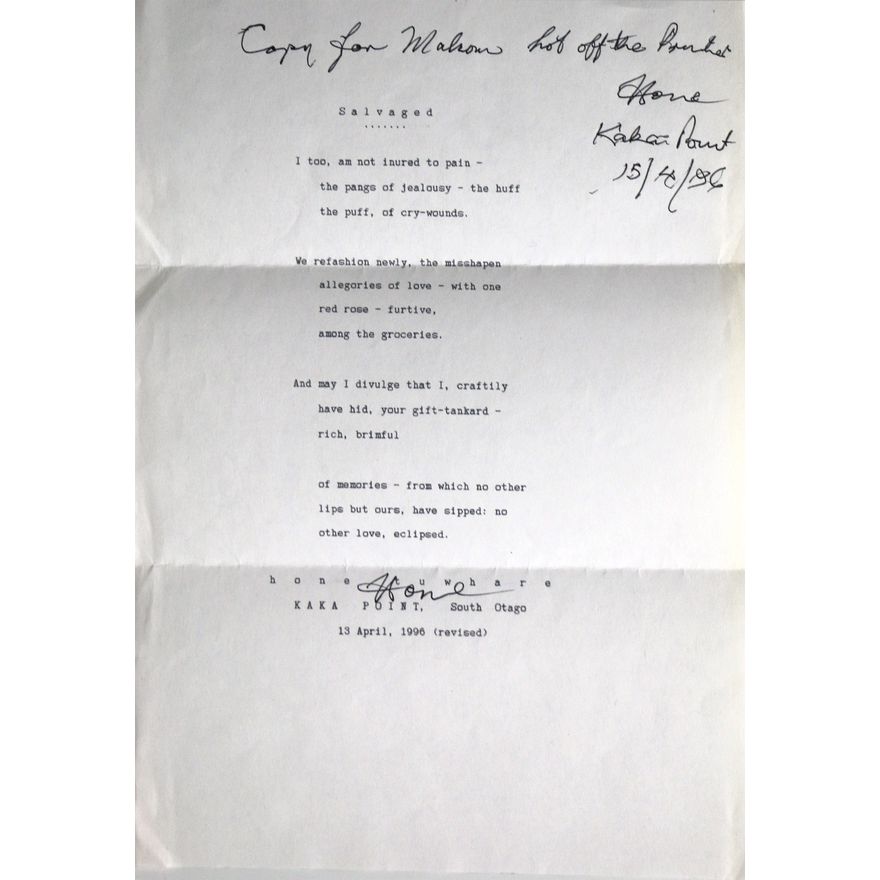 Copy for Malcom hot off the Printer
Hone
Kaka Point
15/4/96
Salvaged
.......
I too, am not inured to pain -
the pangs of jealousy - the huff
the puff, of cry-wounds.
We refashion newly, the misshapen
allegories of love - with one
red rose - furtive,
among the groceries.
And may I divulge that I, craftily
have hid, your gift-tankard -
rich, brimful
of memories - from which no other
lips but ours, have sipped: no
other love, eclipsed.
hone tuwhare
Hone
KAKA POINT, South Otago
13 April, 1996 (revised)